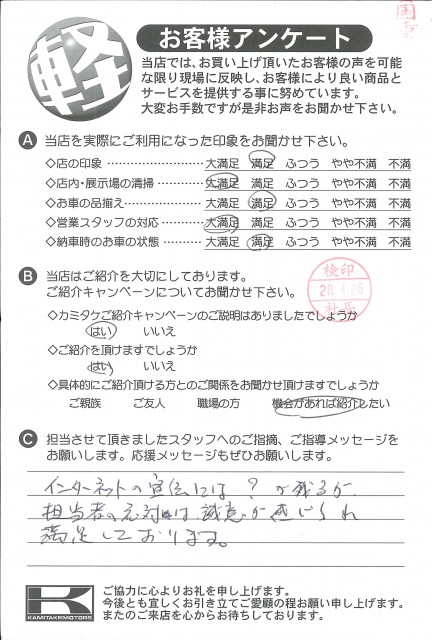 軽
お客様アンケート
当店では、お買い上げ頂いたお客様の声を可能
な限り現場に反映し、お客様により良い商品と
サービスを提供する事に努めています。
大変お手数ですが是非お声をお聞かせ下さい。
A 当店を実際にご利用になった印象をお聞かせ下さい。
◇店の印象 ……………………… 大満足 満足 ふつう やや不満 不満
◇店内・展示場の清掃 ………… 大満足 満足 ふつう やや不満 不満
◇お車の品揃え………………… 大満足 満足 ふつう やや不満 不満
◇営業スタッフの対応 ………… 大満足 満足 ふつう やや不満 不満
◇納車時のお車の状態 ………… 大満足 満足 ふつう やや不満 不満
B 当店はご紹介を大切にしてあります。
ご紹介キャンペーンについてお聞かせ下さい。
検印
28.4.26
社長
◇カミタケご紹介キャンペーンのご説明はありましたでしょうか
はい いいえ
◇ご紹介を頂けますでしょうか
はい いいえ
◇具体的にご紹介頂ける方とのご関係をお聞かせ頂けますでしょうか
ご親族 ご友人 職場の方 機会があれば紹介したい
C 担当させて頂きましたスタッフへのご指摘、ご指導メッセージを
お願いします。応援メッセージもぜひお願いします。
インターネットの宣伝には?が残るが
担当者の応対は、誠意が感じられ
満足しております。
KAMITAKEMOTORS
ご協力に心よりお礼を申し上げます。
今後とも宜しくお引き立てご愛顧の程お願い申し上げます。
またのご来店を心からお待ちしております。